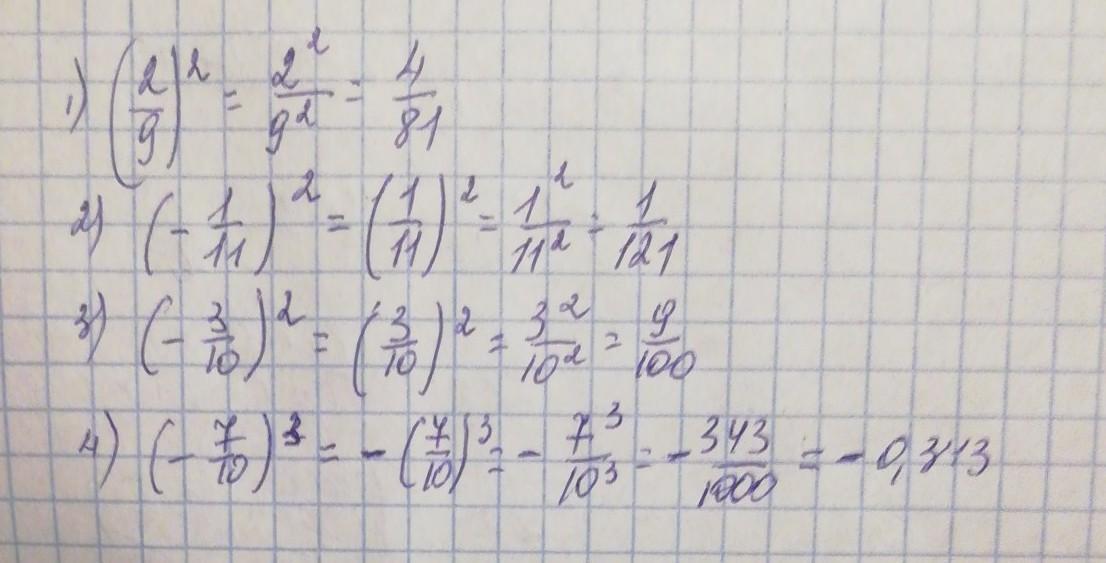 1) (2/9)² = 2²/9² = 4/81
2) (- 1/11)² = (1/11)² = 1²/11² = 1/121
3) (- 3/10)² = (3/10)² = 3²/10² = 9/100
4) (- 7/10)³ = - (7/10)³ = - 7³/10³ = - 343/1000 = - 0,343